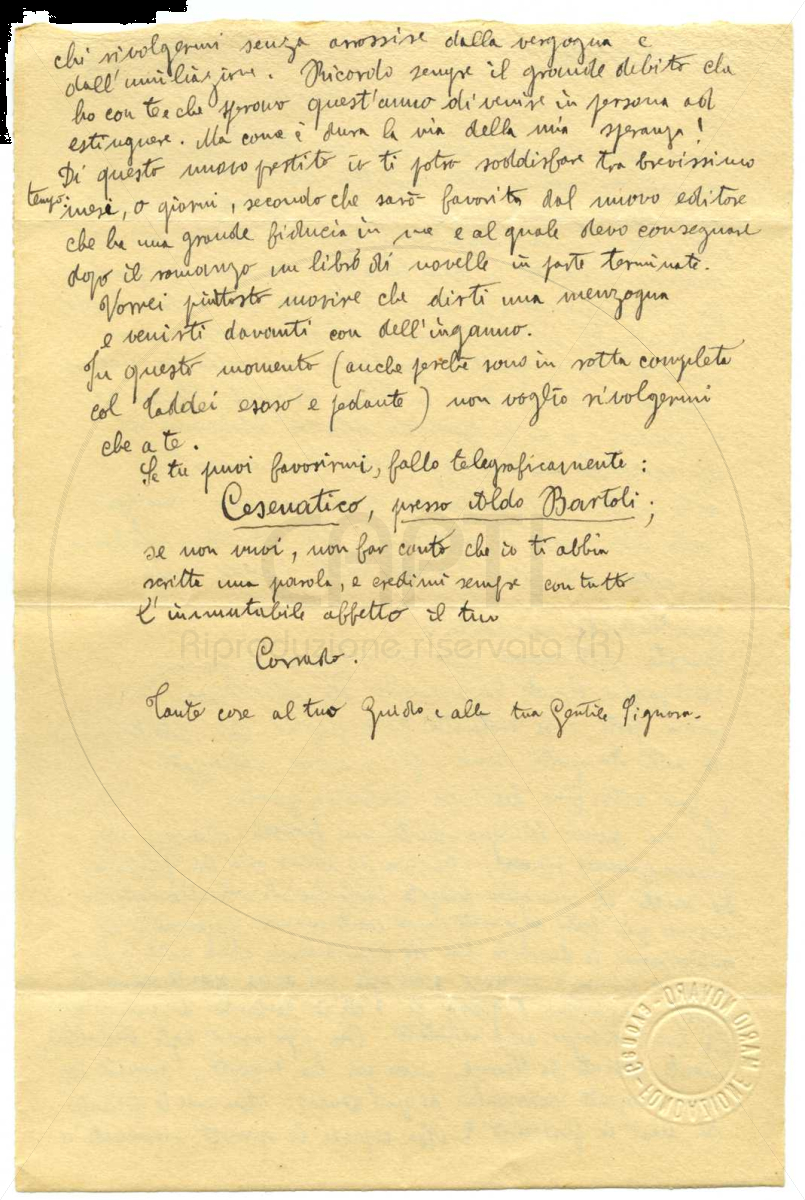 chi rivolgermi senza arrossire dalla vergogna e
dall'umiliazione. Ricordo sempre il grande debito che
ho con te e che speravo quest'anno di venire in persona ad
estinguere. Ma come è dura la via della mia speranza!
Di questo nuovo prestito io ti potrò soddisfare tra brevissimo
tempo:
mesi, o giorni, secondo che sarò favorito dal nuovo editore
che ha una grande fiducia in me e al quale devo consegnare
dopo il romanzo un libro di novelle in parte terminate.
Vorrei piuttosto morire che dirti una menzogna
e venirti davanti con dell'inganno.
In questo momento (anche perchè sono in rotta completa
col Taddei esoso e pedante) non voglio rivolgermi
che a te.
Se tu puoi favorirmi, fallo telegraficamente:
Cesenatico, presso Aldo Bartoli;
se non vuoi, non far conto che io ti abbia
scritto una parola, e credimi sempre con tutto
l'immutabile affetto il tuo
Corrado.
Tante cose al tuo Guido e alla tua Gentile Signora.
Riproduzione riservata (R)
FONDAZIONE MARIO NOVARO - GENOVA